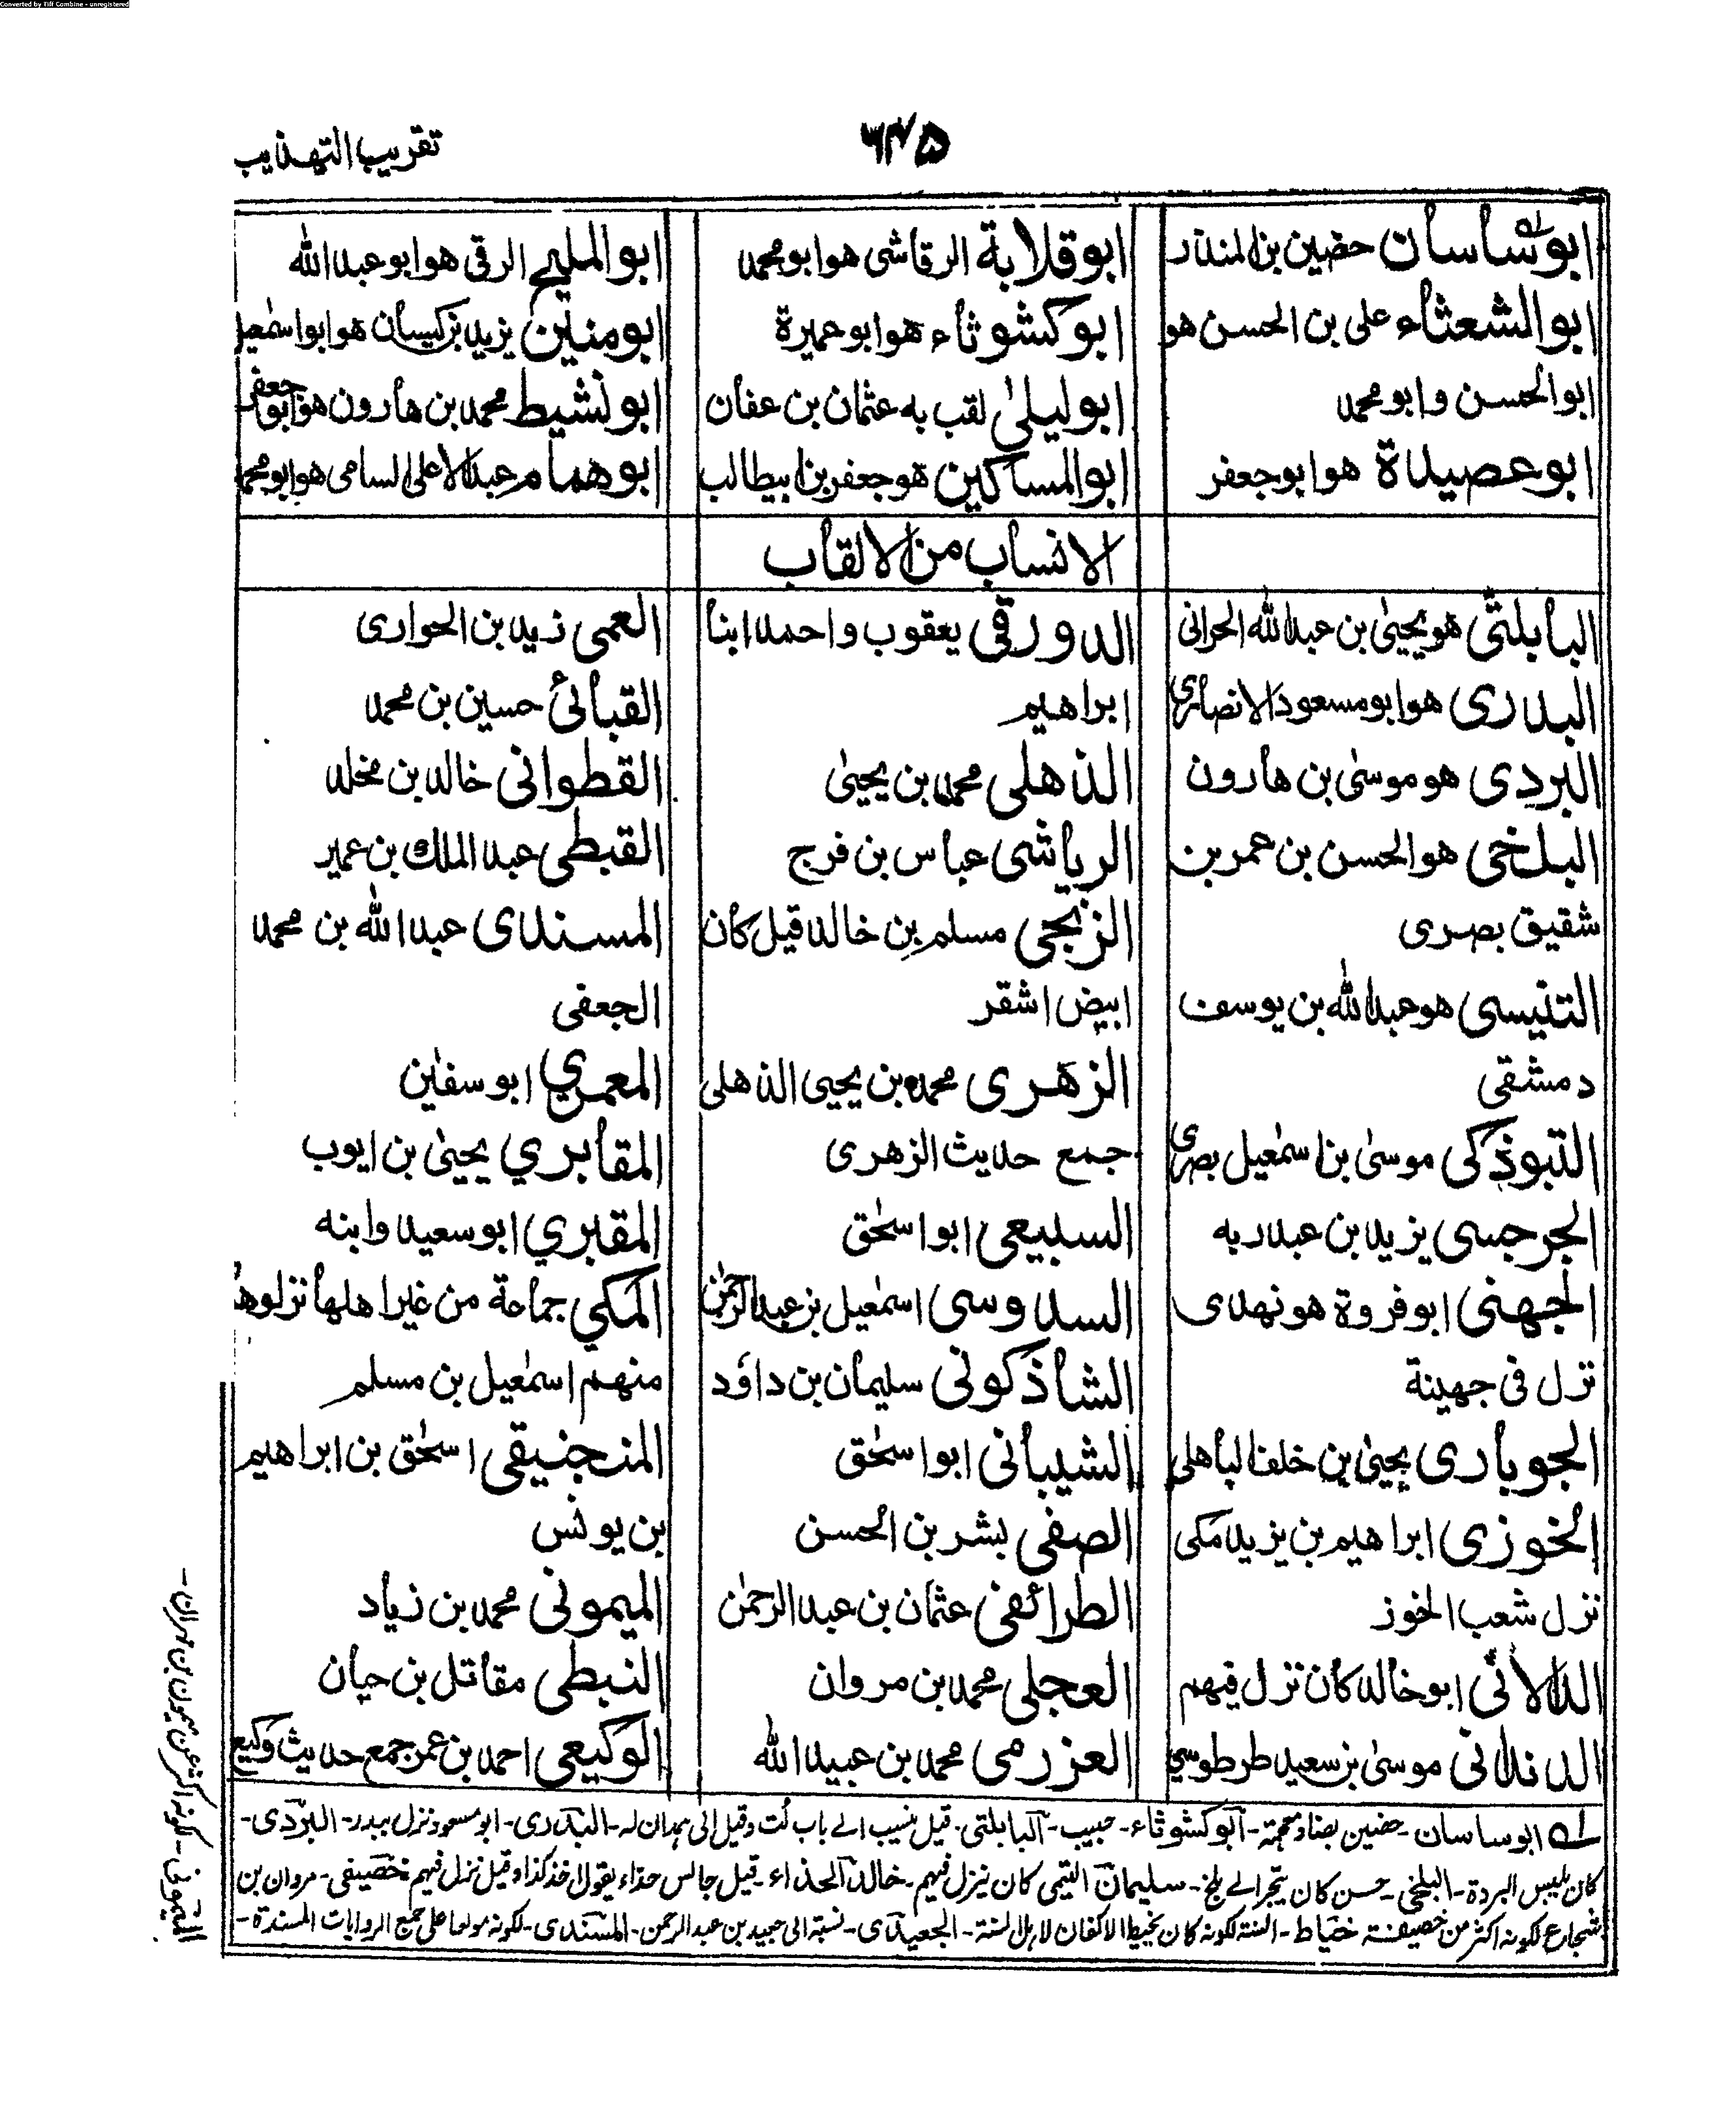 Converted by Tiff Combine - unregistered
تقريب التهذيب
٦٣٥
ابو ساسان حضين بن المنذر
ابو الشعثاء على بن الحسن هو
ابو الحسن وابو محمد
ابو عصيدة هو ابو جعفر
ابو قلابة الرقاشى هو ابو محمد
ابو كشوثاء هو ابو حميرة
ابو ليلىٰ لقب به عثمان بن عفان
ابو المساكين هو جعفر بن ابيطالب
ابو المليح الرقى هو ابو عبد الله
ابو منين يزيد بن كيسان هو ابو اسمٰعيل
ابو نشيط محمد بن هارون هو ابو جعفر
ابو همام عبد الاعلى السامى هو ابو محمد
الانساب من الالقاب
البابلتّى هو يحيىٰ بن عبد الله الحرانى
البدرى هو ابو مسعود الانصارى
البردى هو موسىٰ بن هارون
البلخى هو الحسن بن عمر بن
شقيق بصرى
التنيسى هو عبد الله بن يوسف
دمشقى
التبوذكى موسىٰ بن اسمٰعيل بصرى
الجرجسى يزيد بن عبد ربه
الجهنى ابو فروة هو نهدى
نزل فى جهينة
الجوبارى يحيىٰ بن خلف الباهلى
الخوزى ابراهيم بن يزيد مكى
نزل شعب الخوز
الدالانى ابو خالد كان نزل فيهم
الدندانى موسىٰ بن سعيد طرطوسي
الدورقى يعقوب واحمد ابنا
ابراهيم
الذهلى محمد بن يحيىٰ
الرياشى عباس بن فرج
الزنجى مسلم بن خالد قيل كان
ابيض اشقر
الزهرى محمد بن يحيى الذهلى
جمع حديث الزهرى
السبيعى ابو اسحٰق
السدوسى اسمٰعيل بن عبد الرحمٰن
الشاذكونى سليمان بن داؤد
الشيبانى ابو اسحٰق
الصفى بشر بن الحسن
الطرائفى عثمان بن عبد الرحمٰن
العجلى محمد بن مروان
العزرمى محمد بن عبيد الله
العمى زيد بن الحوارى
القبائى حسين بن محمد
القطوانى خالد بن مخلد
القبطى عبد الملك بن عمير
المسندى عبد الله بن محمد
الجعفى
المعمري ابو سفيٰن
المقابري يحيىٰ بن ايوب
المقبري ابو سعيد وابنه
المكي جماعة من غير اهلها نزلوها
منهم اسمٰعيل بن مسلم
المنجنيقى اسحٰق بن ابراهيم
بن يونس
الميمونى محمد بن زياد
النبطى مقاتل بن حيان
الوكيعى احمد بن عمر جمع حديث وكيع
ابو ساسان - حضين بضاد معجمة - ابو كشوثاء - حبيب - البابلتى - قيل ينسب الے باب لُت وقيل الى - البدرى - ابو مسعود نزل ببدر - البردى -
كان يلبس البردة - البلخى - حسن كان يتجر الے بلخ - سليمان التيمى كان ينزل فيهم - خالد الحذاء - قيل جالس حذاء يقول احذ كذا وقيل نزل فيهم - خصيفى - مروان بن
شجاع لكونه اكثر من خصيف - خياط - السنة لكونه كان يخيط الاكفان لاهل السنة - الجعيدى - نسبة الى جعيد بن عبد الرحمن - المسندى - لكونه مولعا على جمع الروايات المسندة -
الميمونى - لكونه اكثر عن ميمون بن مهران -